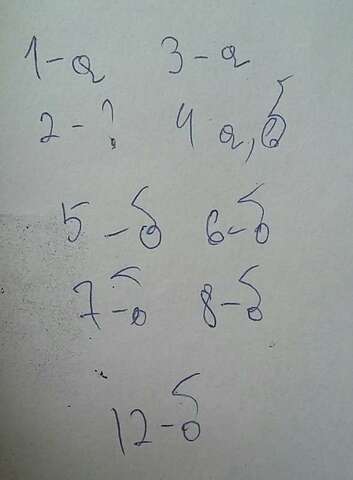 1-а 3-а
2-? 4 а,б
5-б 6-б
7-б 8-б
12-б